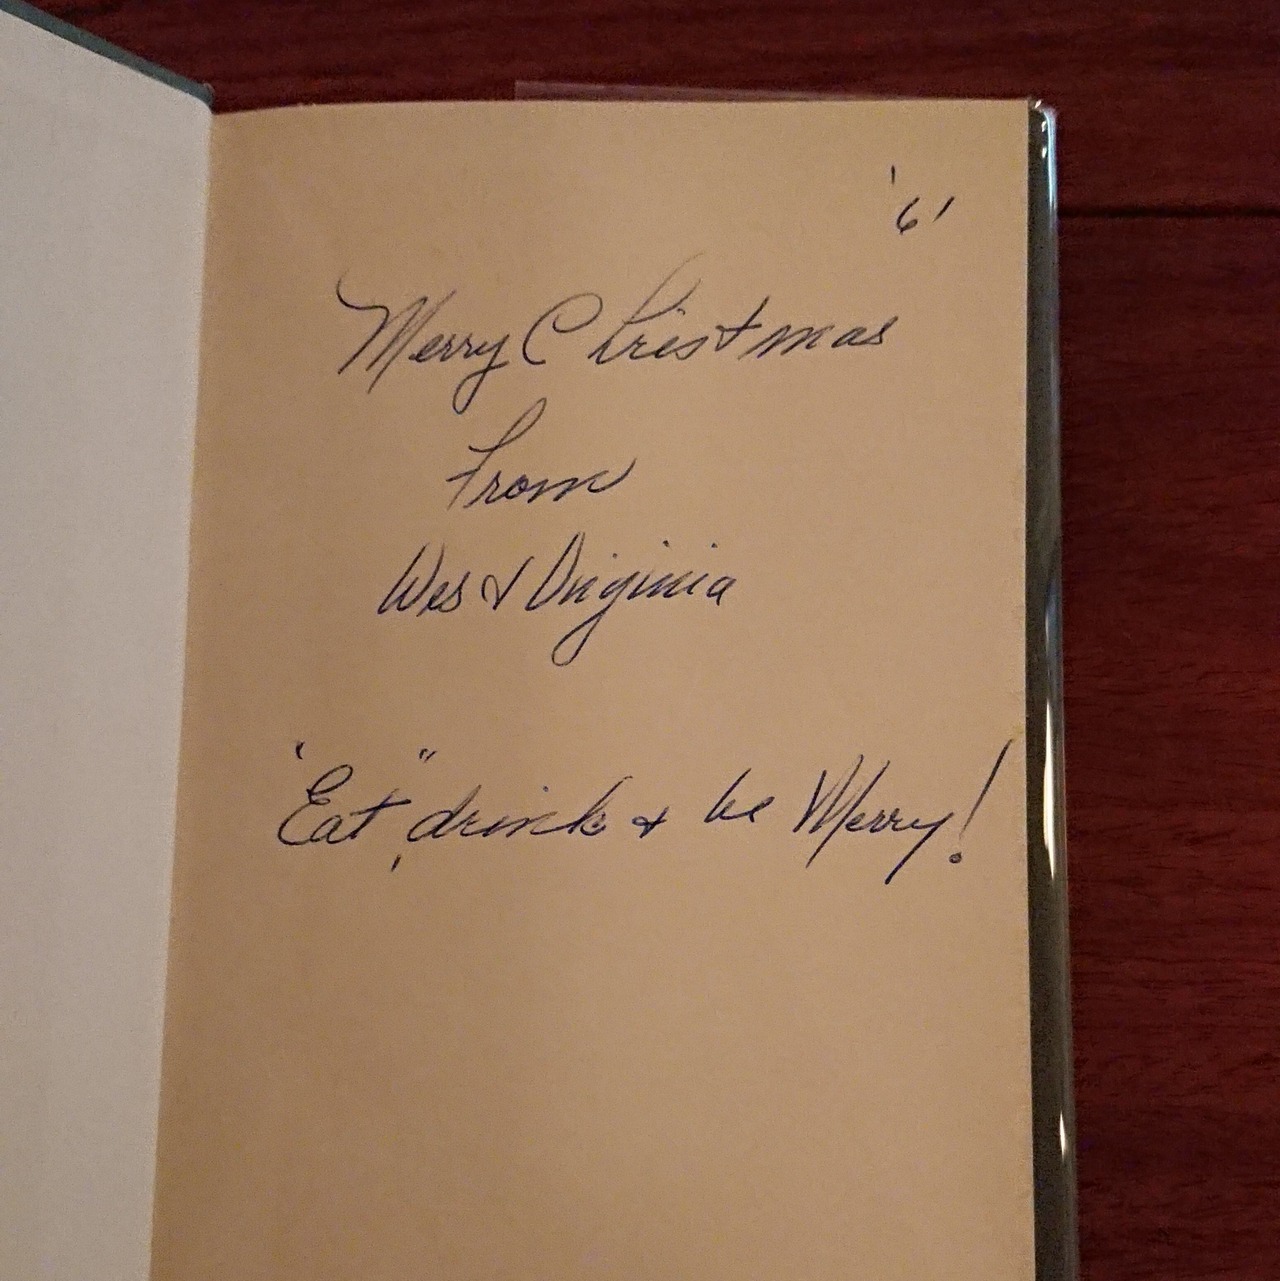 '61
Merry Christmas
From
Wes & Virginia
"Eat", drink & be Merry!